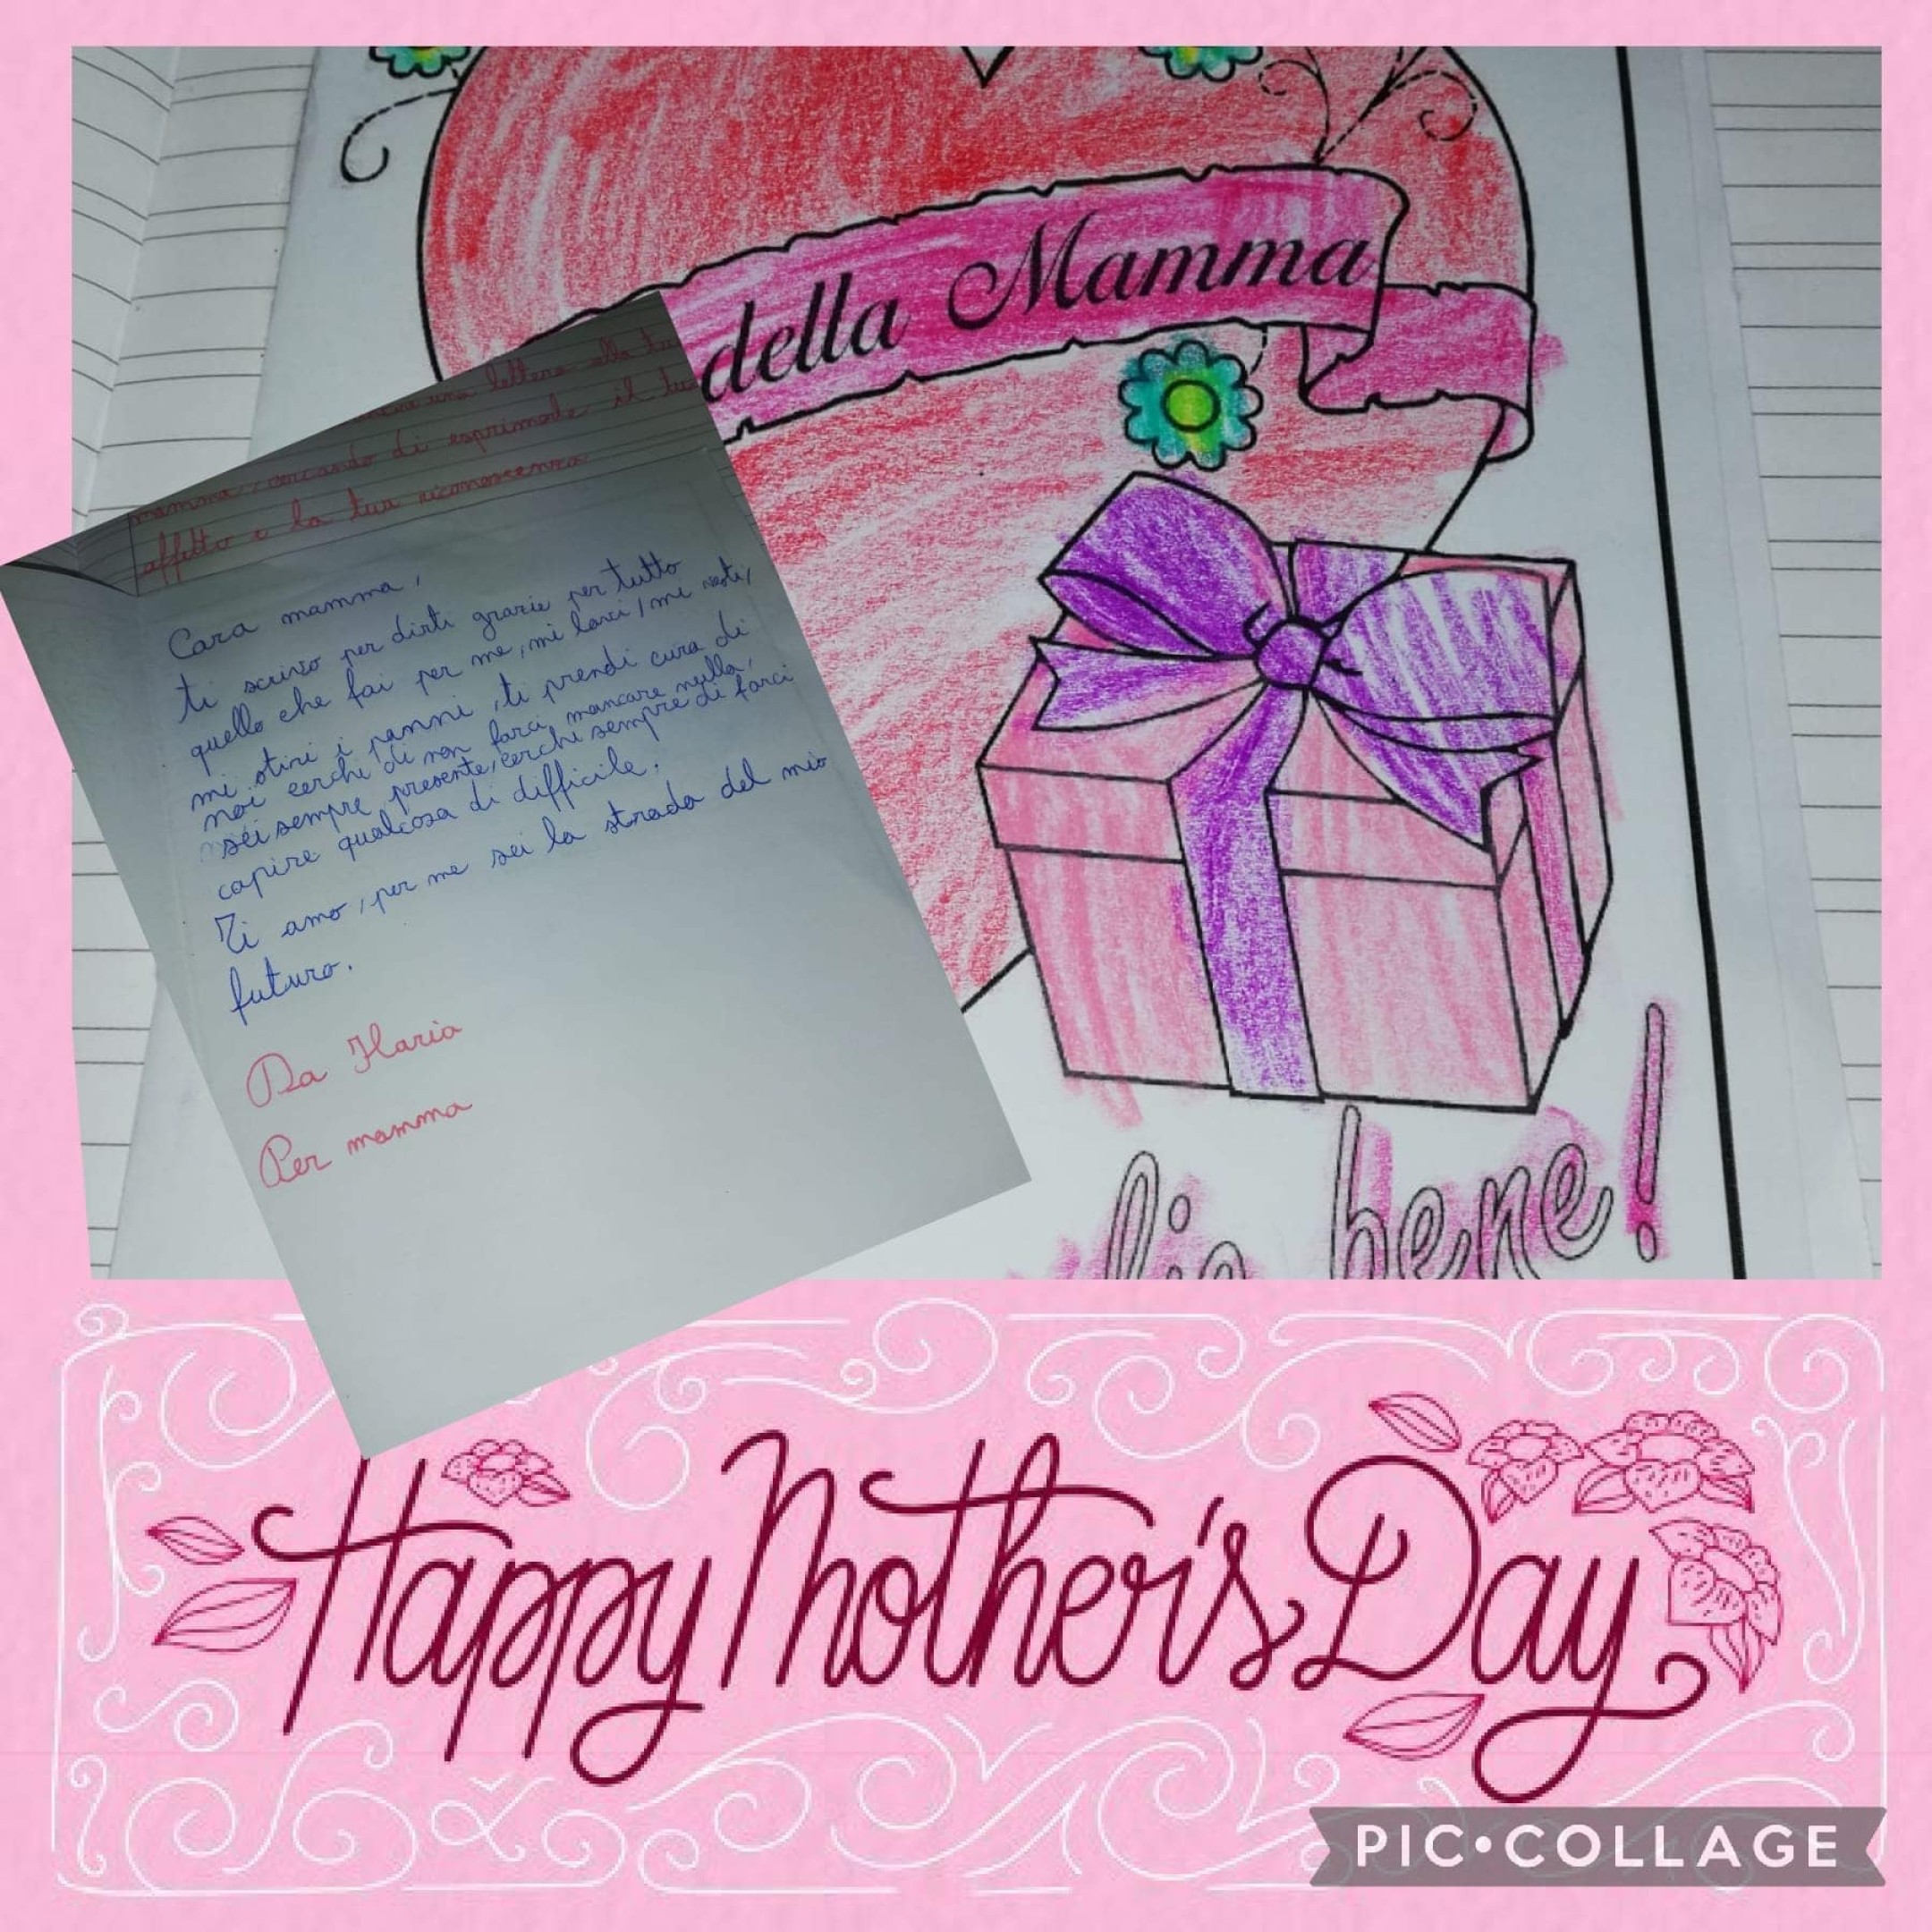 della Mamma
una lettera alla tu
mamma, cercando di esprimede il tuo
affetto e la tua riconoscenza
Cara mamma,
ti scrivo per dirti grazie per tutto
quello che fai per me, mi lavi, mi vesti,
mi stiri i panni, ti prendi cura di
noi cerchi di non farci mancare nulla,
sei sempre presente, cerchi sempre di farci
capire qualcosa di difficile.
Ti amo, per me sei la strada del mio
futuro.
Da Ilaria
Per mamma
lio bene!
Happy Mother's Day
PIC•COLLAGE